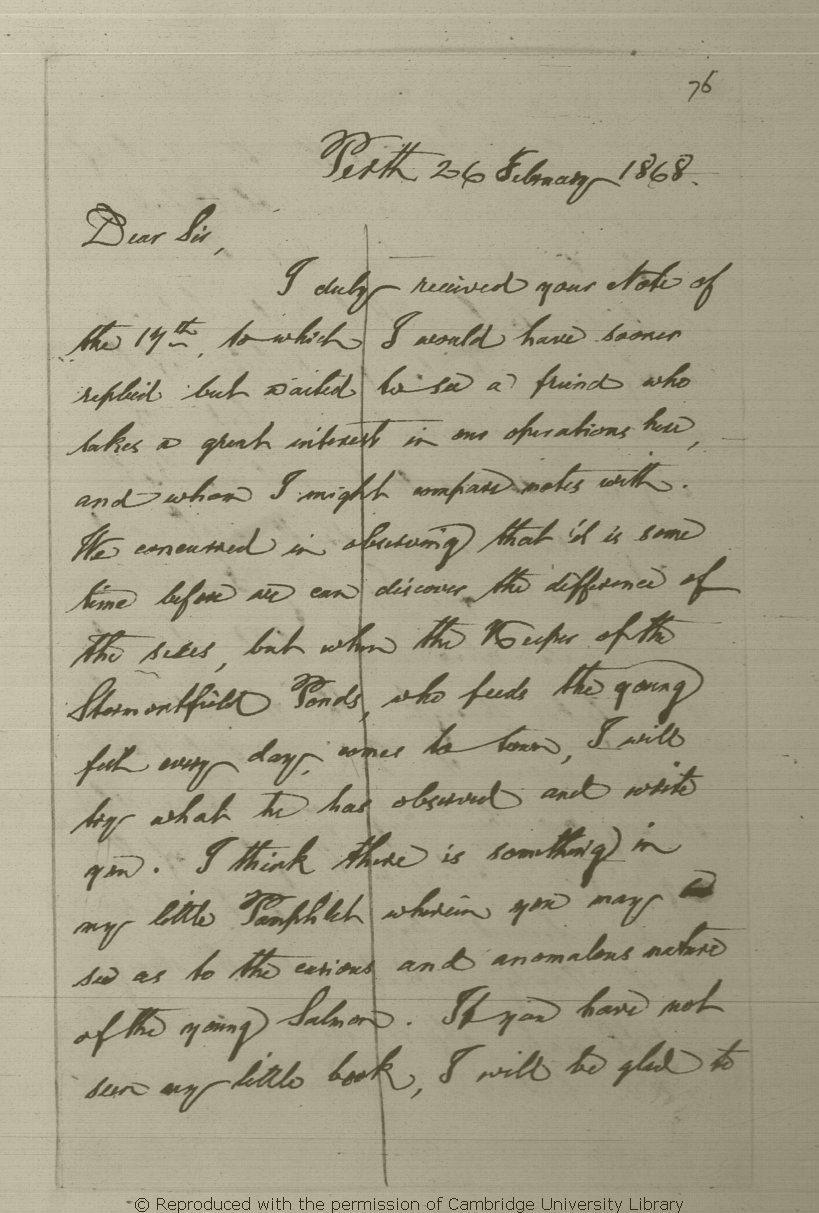 76
Perth 26 February 1868.
Dear Sir,
I duly received your Note of
the 17th, to which I would have sooner
replied but waited to see a friend who
takes a great interest in our operations here,
and whom I might compare notes with.
We concurred in observing that it is some
time before we can discover the difference of
the sexes, but when the Keeper of the
Stormontfield Ponds, who feeds the young
fish every day, comes to town, I will
try what he has observed and write
you. I think there is something in
my little Pamphlet wherein you may
see as to the curious and anomalous nature
of the young Salmon. If you have not
seen my little book, I will be glad to
© Reproduced with the permission of Cambridge University Library